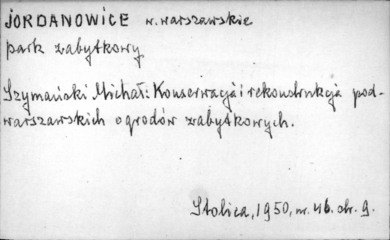 JORDANOWICE w. warszawskie
park zabytkowy
Szymański Michał: Konserwacja i rekonstrukcja pod-
warszawskich ogrodów zabytkowych.
Stolica, 1950, nr. 46. str. 9.